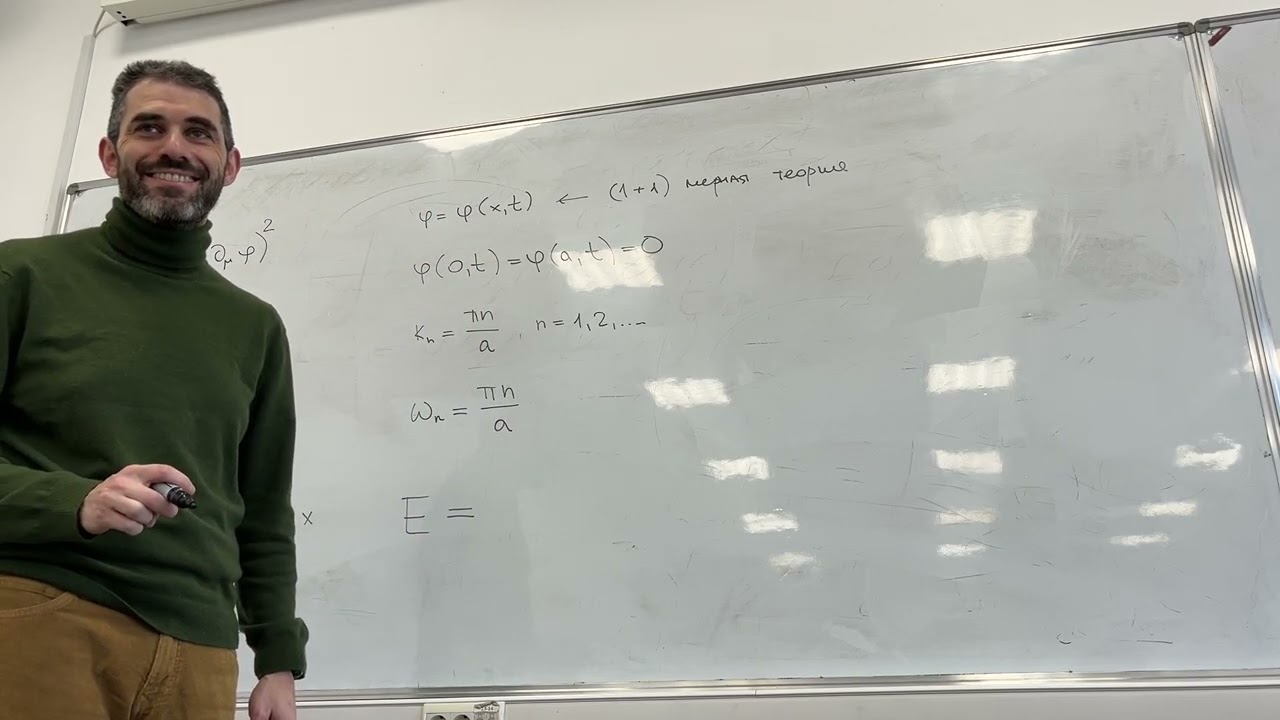 φ = φ(x,t) ← (1+1) мерная теория
∂μ φ)²
φ(0,t) = φ(a,t) = 0
kₙ = πn/a , n = 1,2,...
ωₙ = πn/a
x
E =